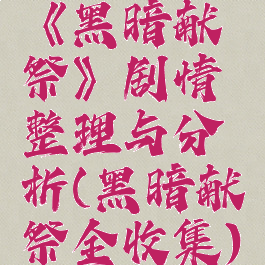 《黑暗献
祭》剧情
整理与分
析(黑暗献
祭全收集)